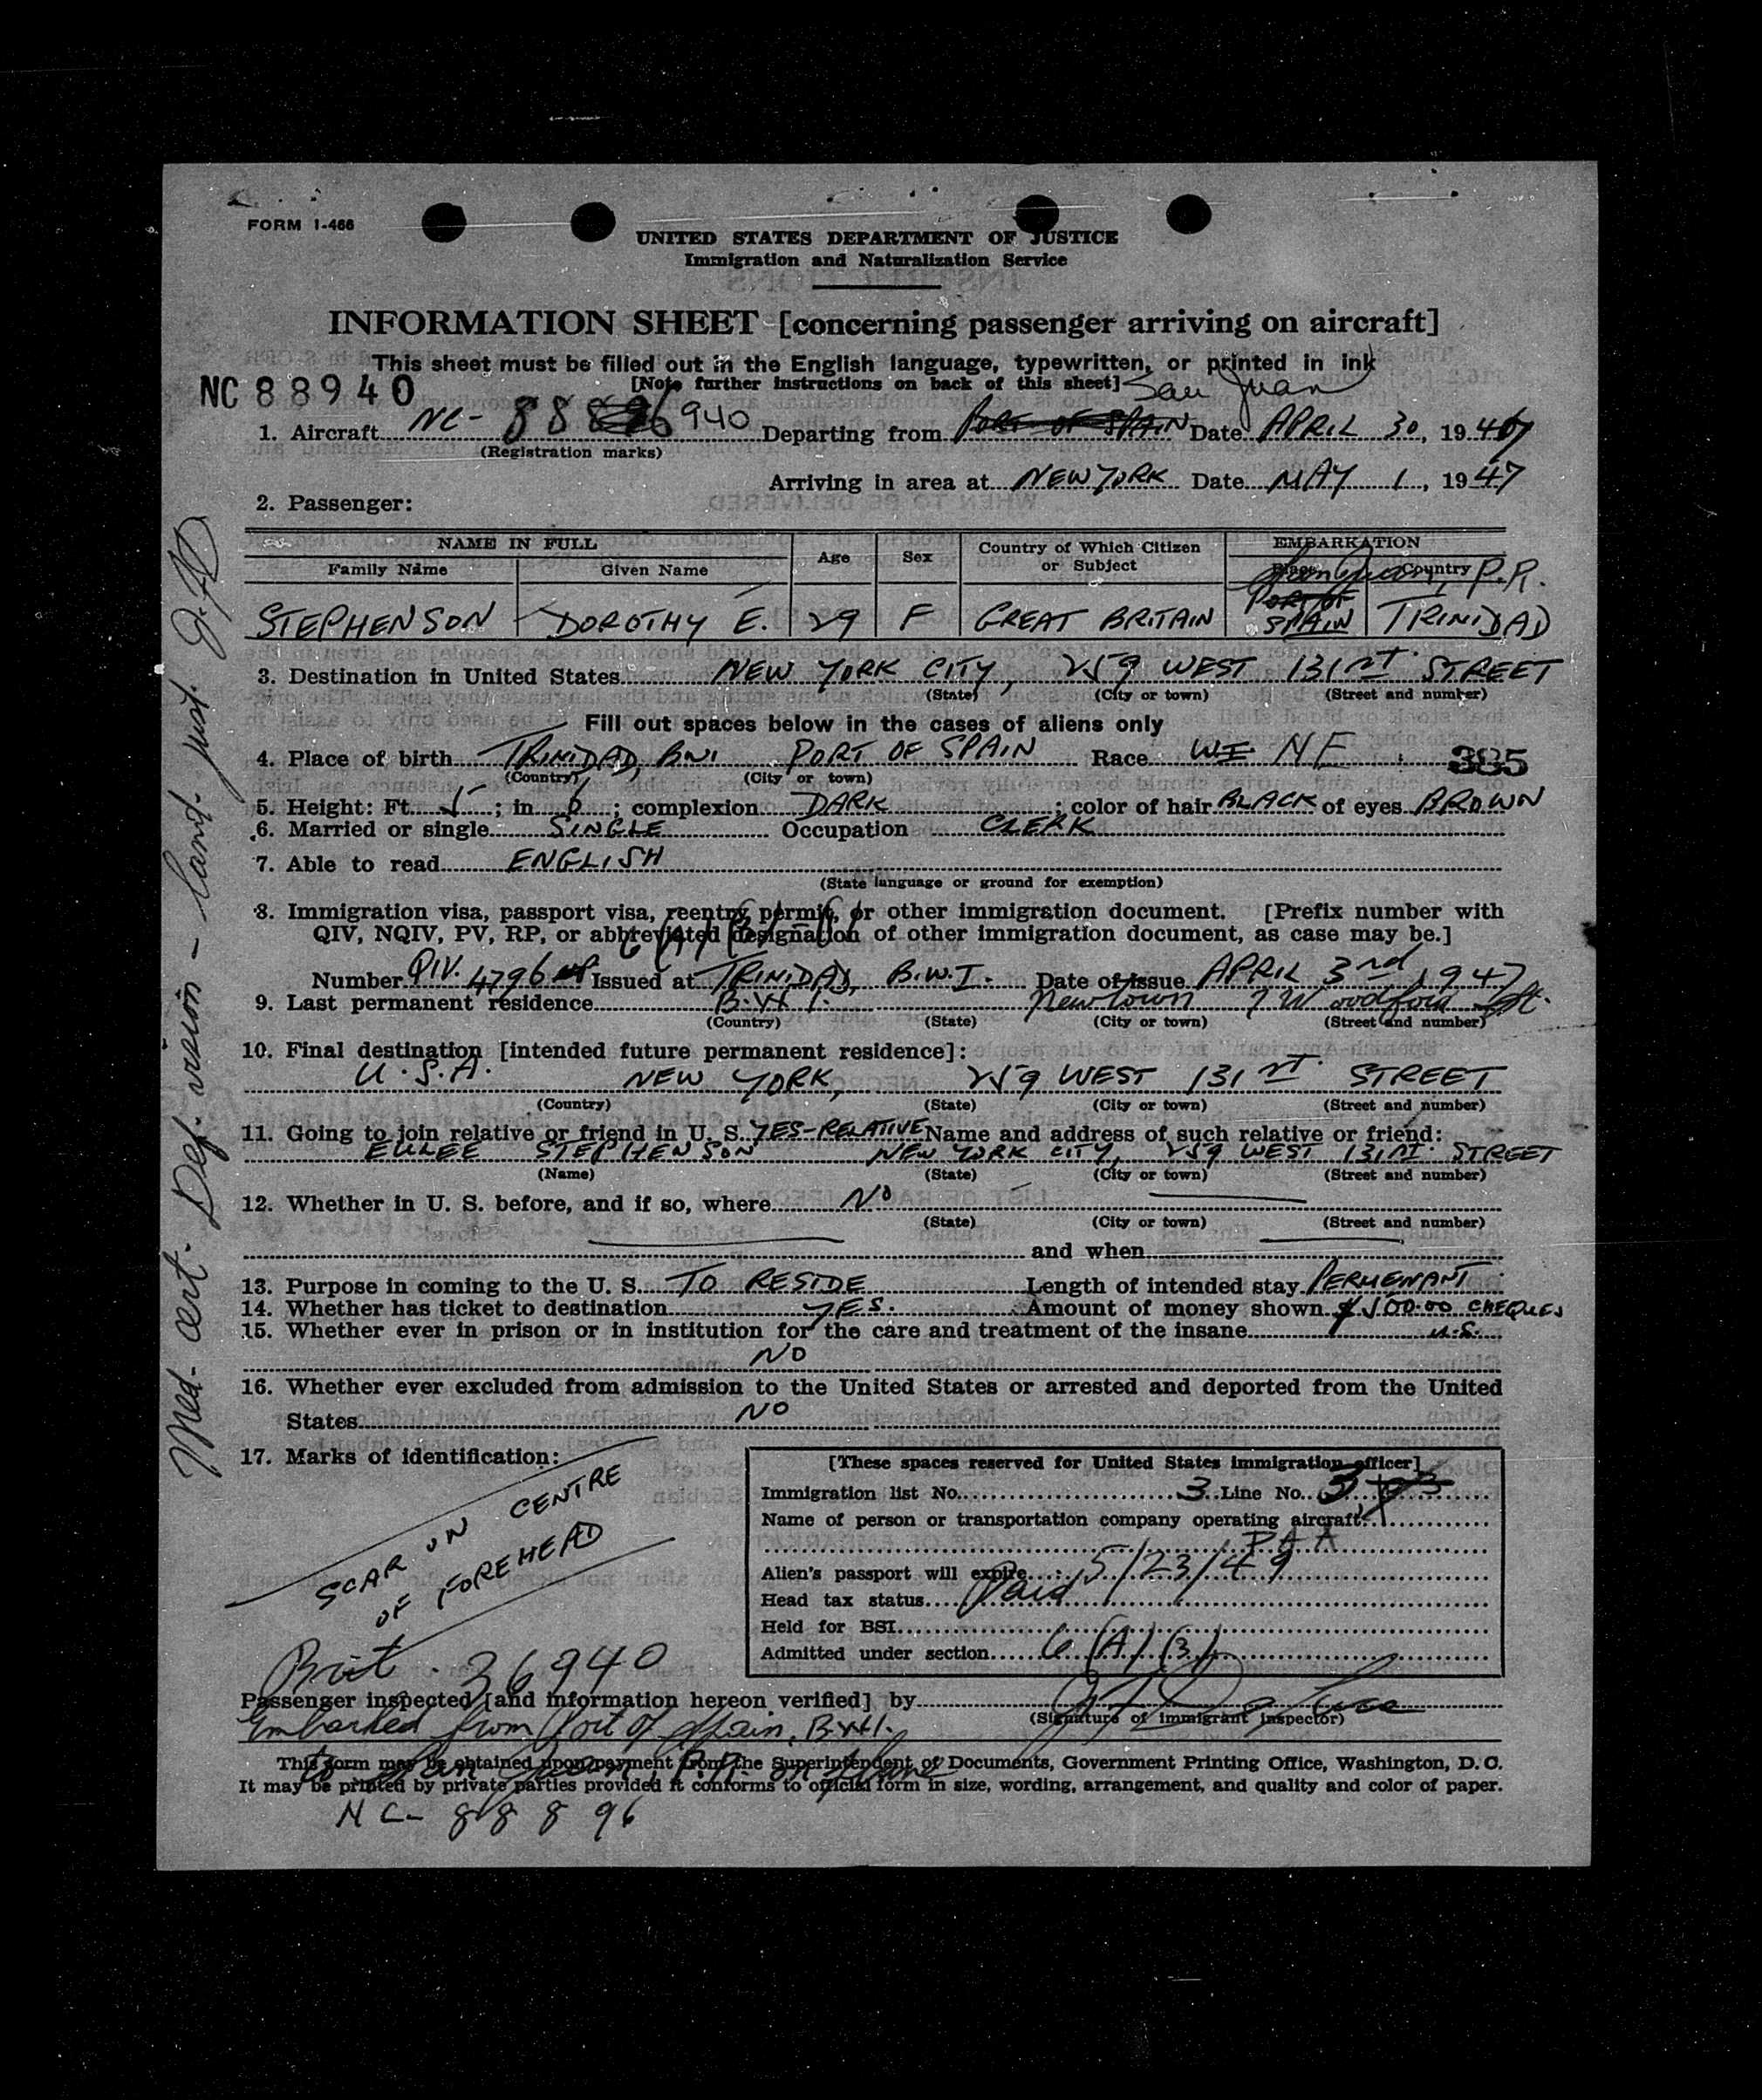 FORM I-466
UNITED STATES DEPARTMENT OF JUSTICE
Immigration and Naturalization Service
INFORMATION SHEET [concerning passenger arriving on aircraft]
This sheet must be filled out in the English language, typewritten, or printed in ink
NC 88940 [Note further instructions on back of this sheet] San Juan
1. Aircraft NC- 88 940 Departing from PORT OF SPAIN Date APRIL 30, 1947
(Registration marks)
Arriving in area at NEW YORK Date MAY 1, 1947
2. Passenger:
NAME IN FULL Age Sex Country of Which Citizen or Subject EMBARKATION
Family Name Given Name Place Country
San Juan, P.R.
STEPHENSON DOROTHY E. 29 F GREAT BRITAIN PORT OF SPAIN TRINIDAD
3. Destination in United States NEW YORK CITY, 259 WEST 131ST STREET
(State) (City or town) (Street and number)
Fill out spaces below in the cases of aliens only
4. Place of birth TRINIDAD, BWI PORT OF SPAIN Race WI NE 385
(Country) (City or town)
5. Height: Ft. 5; in 6; complexion DARK; color of hair BLACK of eyes BROWN
6. Married or single SINGLE Occupation CLERK
7. Able to read ENGLISH
(State language or ground for exemption)
8. Immigration visa, passport visa, reentry permit, or other immigration document. [Prefix number with
QIV, NQIV, PV, RP, or abbreviated designation of other immigration document, as case may be.]
Number QIV. 4796 Issued at TRINIDAD, B.W.I. Date of issue APRIL 3rd 1947
9. Last permanent residence B.W.I. Newtown 7 Woodford St.
(Country) (State) (City or town) (Street and number)
10. Final destination [intended future permanent residence]:
U.S.A. NEW YORK, 259 WEST 131ST STREET
(Country) (State) (City or town) (Street and number)
11. Going to join relative or friend in U. S. YES-RELATIVE Name and address of such relative or friend:
EULEE STEPHENSON NEW YORK CITY, 259 WEST 131ST STREET
(Name) (State) (City or town) (Street and number)
12. Whether in U. S. before, and if so, where NO
(State) (City or town) (Street and number)
and when
13. Purpose in coming to the U. S. TO RESIDE Length of intended stay PERMENANT
14. Whether has ticket to destination YES. Amount of money shown $100.00 CHEQUES
15. Whether ever in prison or in institution for the care and treatment of the insane U.S.
NO
16. Whether ever excluded from admission to the United States or arrested and deported from the United
States NO
17. Marks of identification:
SCAR ON CENTRE
OF FOREHEAD
[These spaces reserved for United States immigration officer]
Immigration list No. 3 Line No. 3
Name of person or transportation company operating aircraft
PAA
Alien's passport will expire 5/23/49
Head tax status Paid
Held for BSI
Admitted under section 6(A)(3)
Brit. 36940
Passenger inspected [and information hereon verified] by
(Signature of immigrant inspector)
Embarked from Port of Spain, B.W.I.
This form may be obtained upon payment from the Superintendent of Documents, Government Printing Office, Washington, D. C.
It may be printed by private parties provided it conforms to official form in size, wording, arrangement, and quality and color of paper.
to San Juan, P.R. on plane
NC- 88896
Med. cert. Def. vision - land. just.